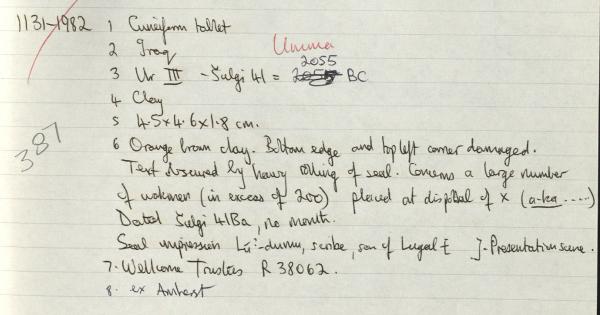 1131-1982 1 Cuneiform tablet
2 Iraq
Umma
2055
3 Ur III - Šulgi 41 = 2055 BC
4 Clay
5 4.5x4.6x1.8 cm.
387
6 Orange brown clay. Bottom edge and top left corner damaged.
Text obscured by heavy rolling of seal. Concerns a large number
of workmen (in excess of 200) placed at disposal of x (a-ka .....)
Dated Šulgi 41Ba, no month.
Seal impression Lú-dummu, scribe, son of Lugal-[ ]. Presentation scene.
7. Wellcome Trustees R 38062.
8. ex Amherst